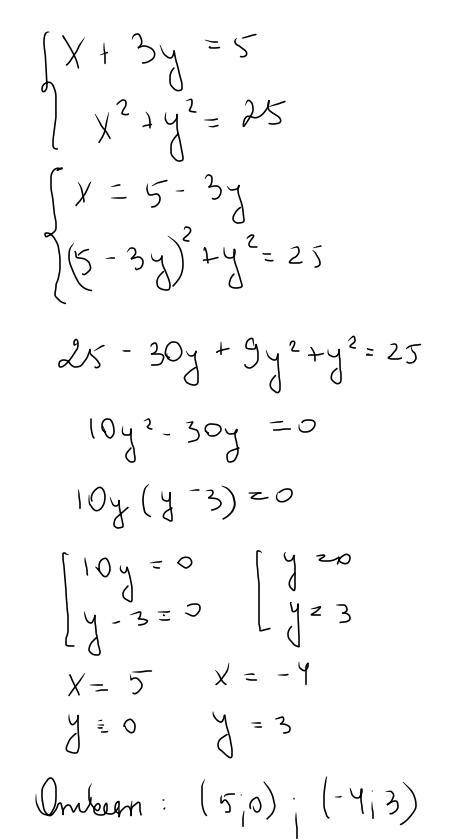 x + 3y = 5
x² + y² = 25
x = 5 - 3y
(5 - 3y)² + y² = 25
25 - 30y + 9y² + y² = 25
10y² - 30y = 0
10y (y - 3) = 0
10y = 0 y = 0
y - 3 = 0 y = 3
x = 5 x = -4
y = 0 y = 3
Ответ: (5;0) ; (-4;3)